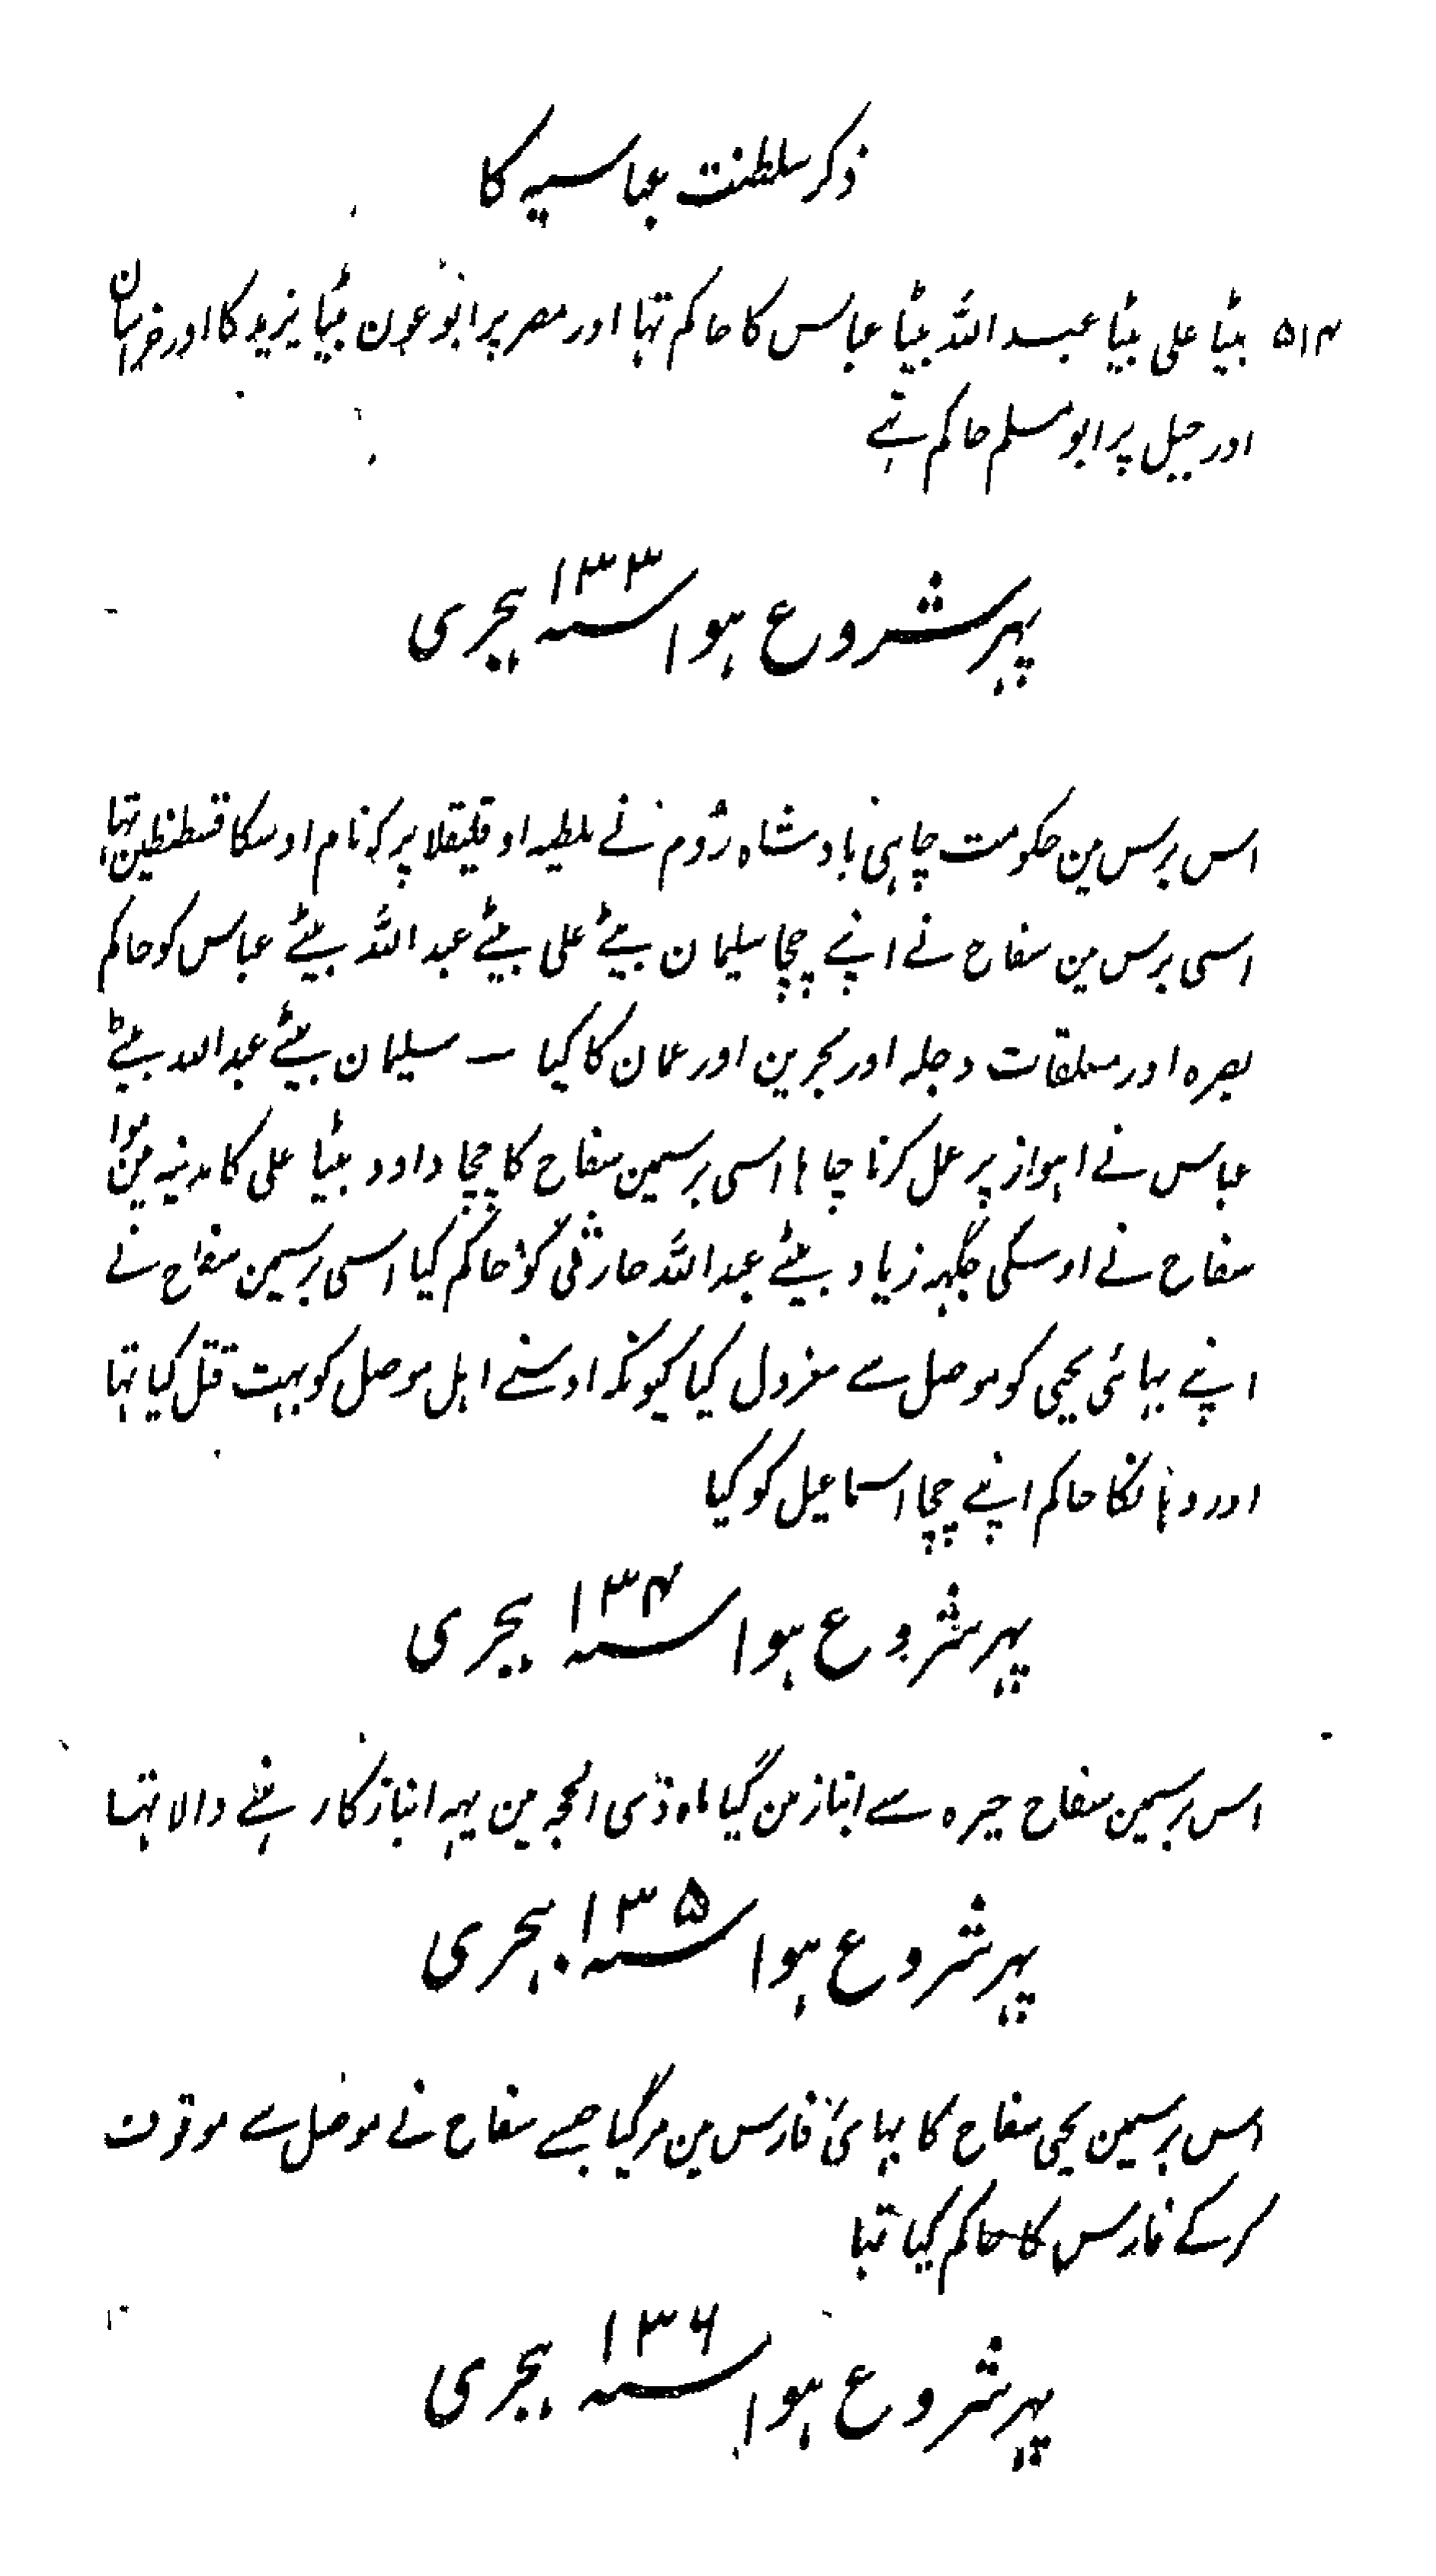 ذکر سلطنت عباسیہ کا
۵۱۴ بیٹا علی بیٹا عبد اللہ بیٹا عباس کا حاکم تہا اور مصر پر ابو عون بیٹا یزید کا اور خراسان
اور جبل پر ابو مسلم حاکم تہے
پہر شروع ہوا سنہ ۱۳۳ ہجری
اس برس مین حکومت چاہی بادشاہ روم نے ملطیہ او قلیقلا پر کہ نام اوسکا قسطنطین تہا
اسی برس مین سفاح نے اپنے چچا سلیمان بیٹے علی بیٹے عبد اللہ بیٹے عباس کو حاکم
بصرہ اور معلقات دجلہ اور بحرین اور عمان کا کیا ـ سلیمان بیٹے عبد اللہ بیٹے
عباس نے اہواز پر عمل کرنا چاہا اسی برسمین سفاح کا چچا داود بیٹا علی کا مدینہ مین موا
سفاح نے اوسکی جگہہ زیاد بیٹے عبد اللہ حارثی کو حاکم کیا اسی برسمین سفاح نے
اپنے بہائی یحیی کو موصل سے معزول کیا کیونکہ اوسنے اہل موصل کو بہت قتل کیا تہا
اور وہانکا حاکم اپنے چچا اسماعیل کو کیا
پہر شروع ہوا سنہ ۱۳۴ ہجری
اس برسمین سفاح حیرہ سے انبار من گیا ماہ ذی الحجہ مین یہہ انبار کا رہنے والا تہا
پہر شروع ہوا سنہ ۱۳۵ ہجری
اس برسمین یحیی سفاح کا بہائی فارس مین مرگیا جسے سفاح نے موصل سے موقوف
کرکے فارس کا حاکم کیا تہا
پہر شروع ہوا سنہ ۱۳۶ ہجری